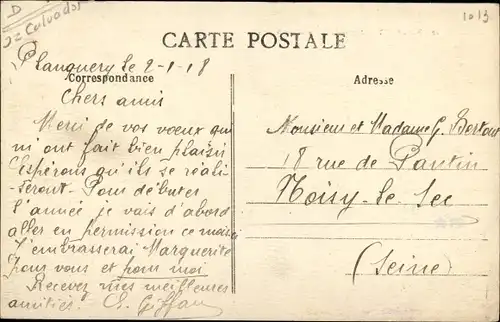 D
Calvados
1013
CARTE POSTALE
Planquery le 2-1-18
Correspondance
Adresse
Chers amis
Merci de vos voeux qui
m'ont fait bien plaisir
Espérons qu'ils se réali-
seront. Pour débuter
l'année je vais d'abord
aller en permission ce mois-ci
J'embrasserai Marguerite
pour vous et pour moi
Recevez mes meilleures
amitiés.
Monsieur et Madame G. Bertaut
18 rue de Pantin
Noisy-le-Sec
(Seine)